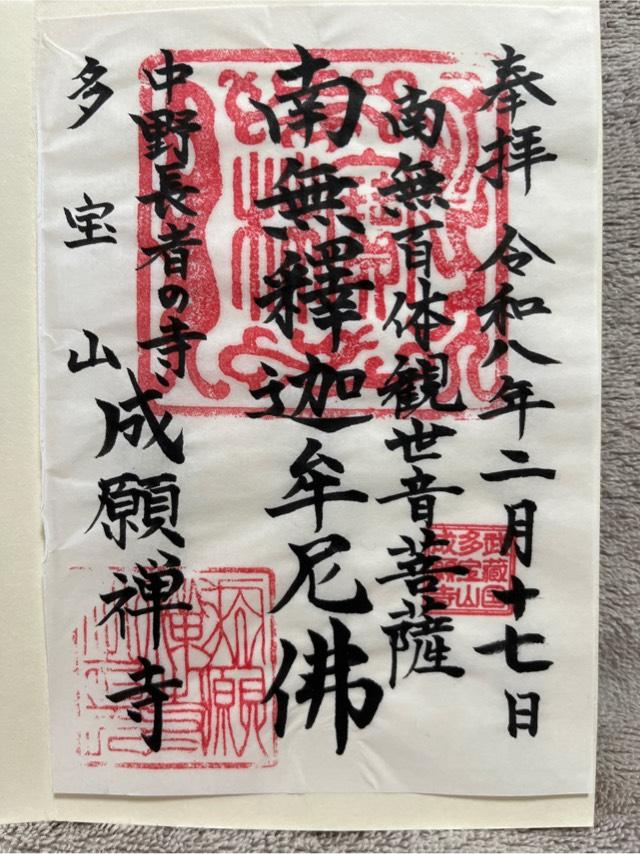 奉拝 令和八年二月十七日
南無百体観世音菩薩
南無釋迦牟尼佛
中野長者の寺
多宝山 成願禅寺
武蔵国
多宝山
成願寺